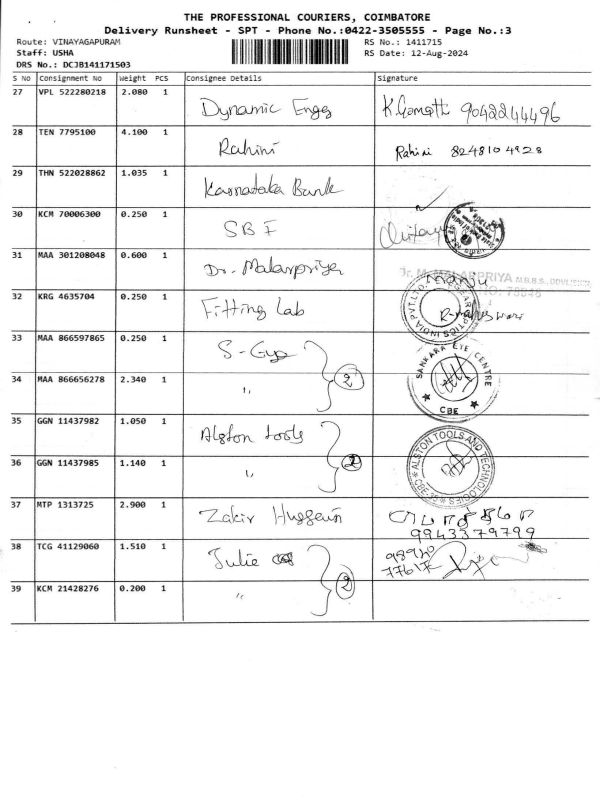 THE PROFESSIONAL COURIERS, COIMBATORE
Delivery Runsheet - SPT - Phone No.:0422-3505555 - Page No.:3
Route: VINAYAGAPURAM RS No.: 1411715
Staff: USHA RS Date: 12-Aug-2024
DRS No.: DCJB141171503
S No Consignment No Weight PCS Consignee Details Signature
27 VPL 522280218 2.080 1 Dynamic Engg K.Gomathi 9042244496
28 TEN 7795100 4.100 1 Rahini Rahini 8248104928
29 THN 522028862 1.035 1 Karnataka Bank
30 KCM 70006300 0.250 1 SBI
31 MAA 301208048 0.600 1 Dr. Malarpriya Manju
Dr. M. MALARPRIYA M.B.B.S.,
32 KRG 4635704 0.250 1 Fitting Lab
33 MAA 866597865 0.250 1 S-Gyp
34 MAA 866656278 2.340 1 " 2
SANKARA EYE CENTRE
CBE
35 GGN 11437982 1.050 1 Alston tools
36 GGN 11437985 1.140 1 " 2
ALSTON TOOLS AND TECHNOLOGIES
CBE-35
37 MTP 1313725 2.900 1 Zakir Hussain
9943379799
38 TCG 41129060 1.510 1 Julie
39 KCM 21428276 0.200 1 " 2